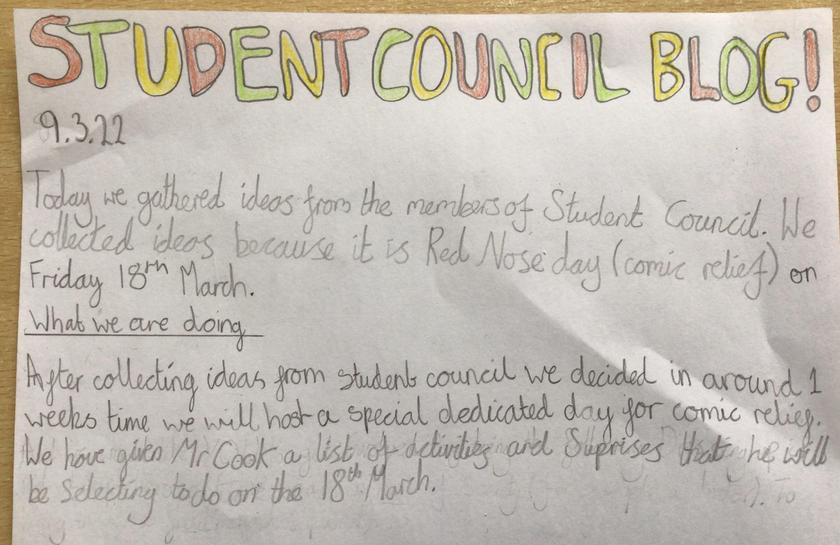 STUDENT COUNCIL BLOG!
9.3.22
Today we gathered ideas from the members of Student Council. We
collected ideas because it is Red Nose day (comic relief) on
Friday 18th March.
What we are doing
After collecting ideas from student council we decided in around 1
weeks time we will host a special dedicated day for comic relief.
We have given Mr Cook a list of activities and Suprises that he will
be Selecting to do on the 18th March.